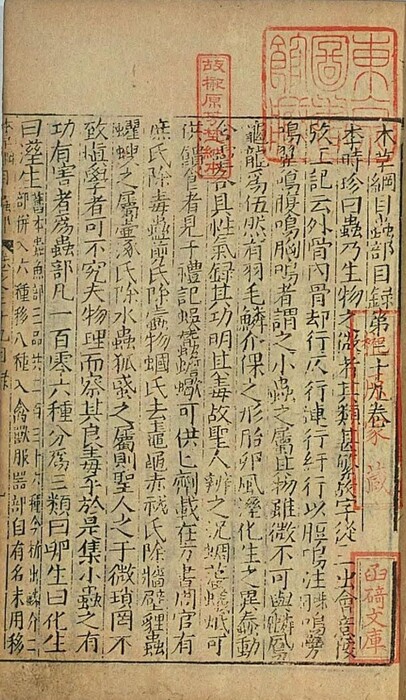 本草綱目蟲部目錄第三十九卷
李時珍曰蟲乃生物之微者其類甚繁故字從三虫會意按
攷工記云外骨內骨却行仄行連行紆行以脰鳴注鳴旁
鳴翼鳴腹鳴胸鳴者謂之小蟲之屬其物雖微不可與麟鳳
龜龍爲伍然有羽毛鱗介倮之形胎卵風濕化生之異蠢動
含靈各具性氣錄其功明其毒故聖人辨之況蜩蚻蟻蚳可
供饋食者見于禮記蜈蠶蟾蠍可供匕劑載在方書周官有
庶氏除毒蠱翦氏除蠹物蟈氏去蛙黽赤犮氏除墻壁貍蟲
蠷螋之屬壷涿氏除水蟲狐蜮之屬則聖人之于微瑣罔不
致慎學者可不究夫物理而察其良毒乎於是集小蟲之有
功有害者爲蟲部凡一百零六種分爲三類曰卵生曰化生
曰濕生
舊本蟲魚部三品共二百三十六種今析出鱗介二
部併入六種移八種入禽獸服器部自有名未用移
東
圖書
館
家藏
函碕文庫